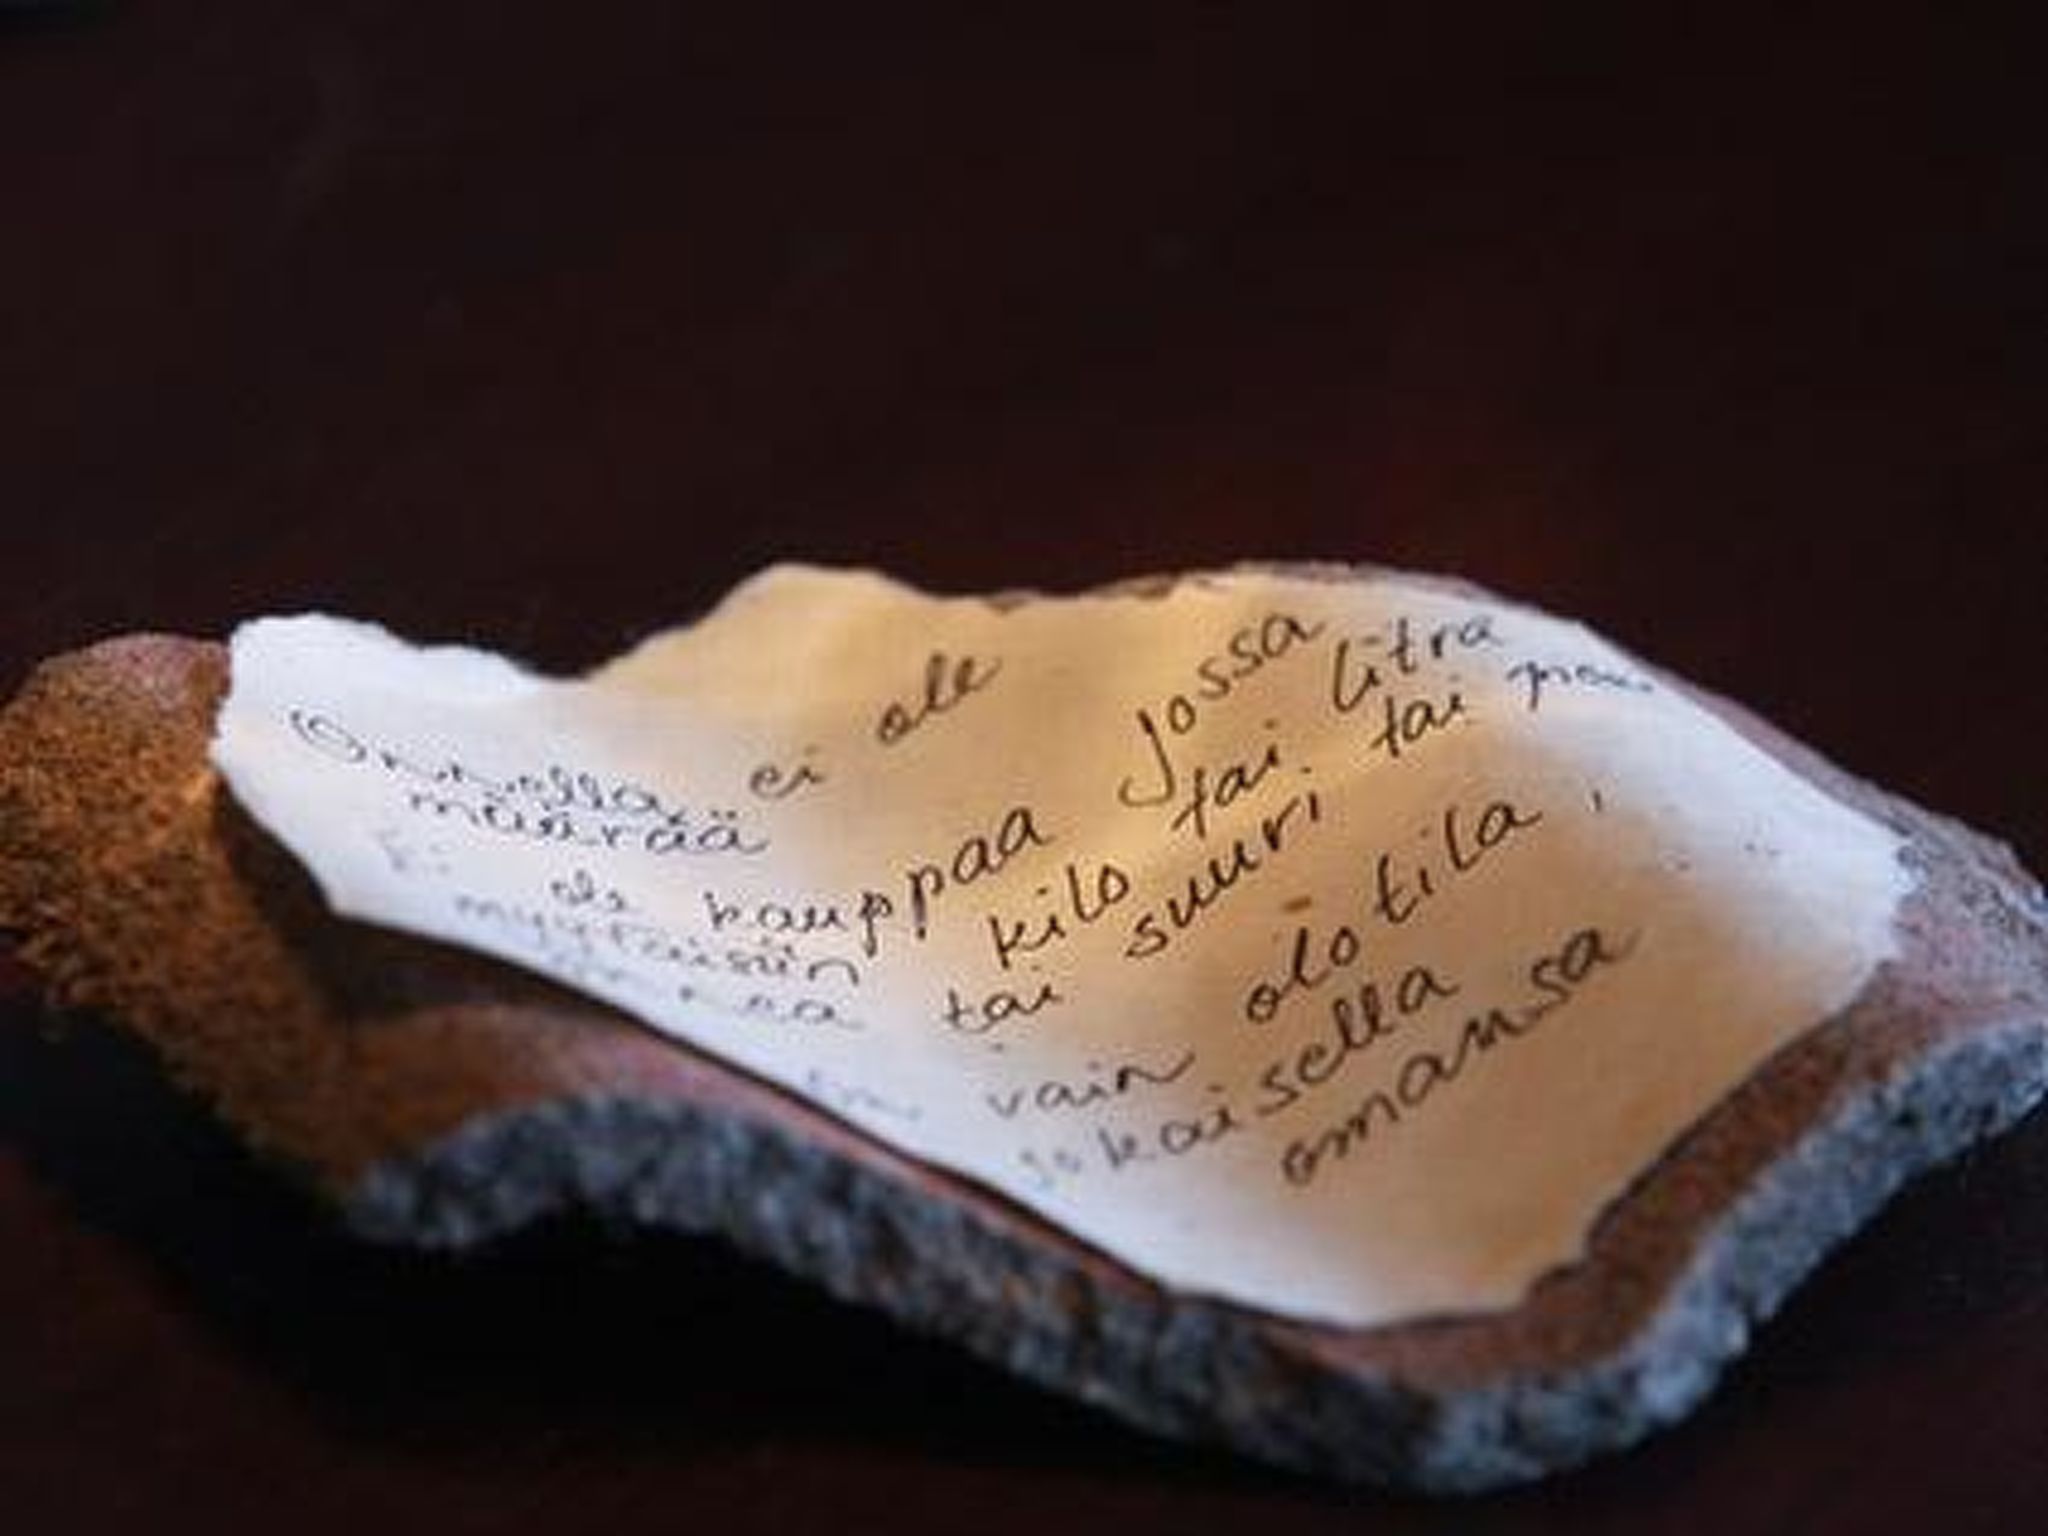 Onnella ei ole
määrää
ei ole kauppaa jossa
myytäisiin kilo tai litra
tai suuri tai
vain olotila,
jokaisella
omansa